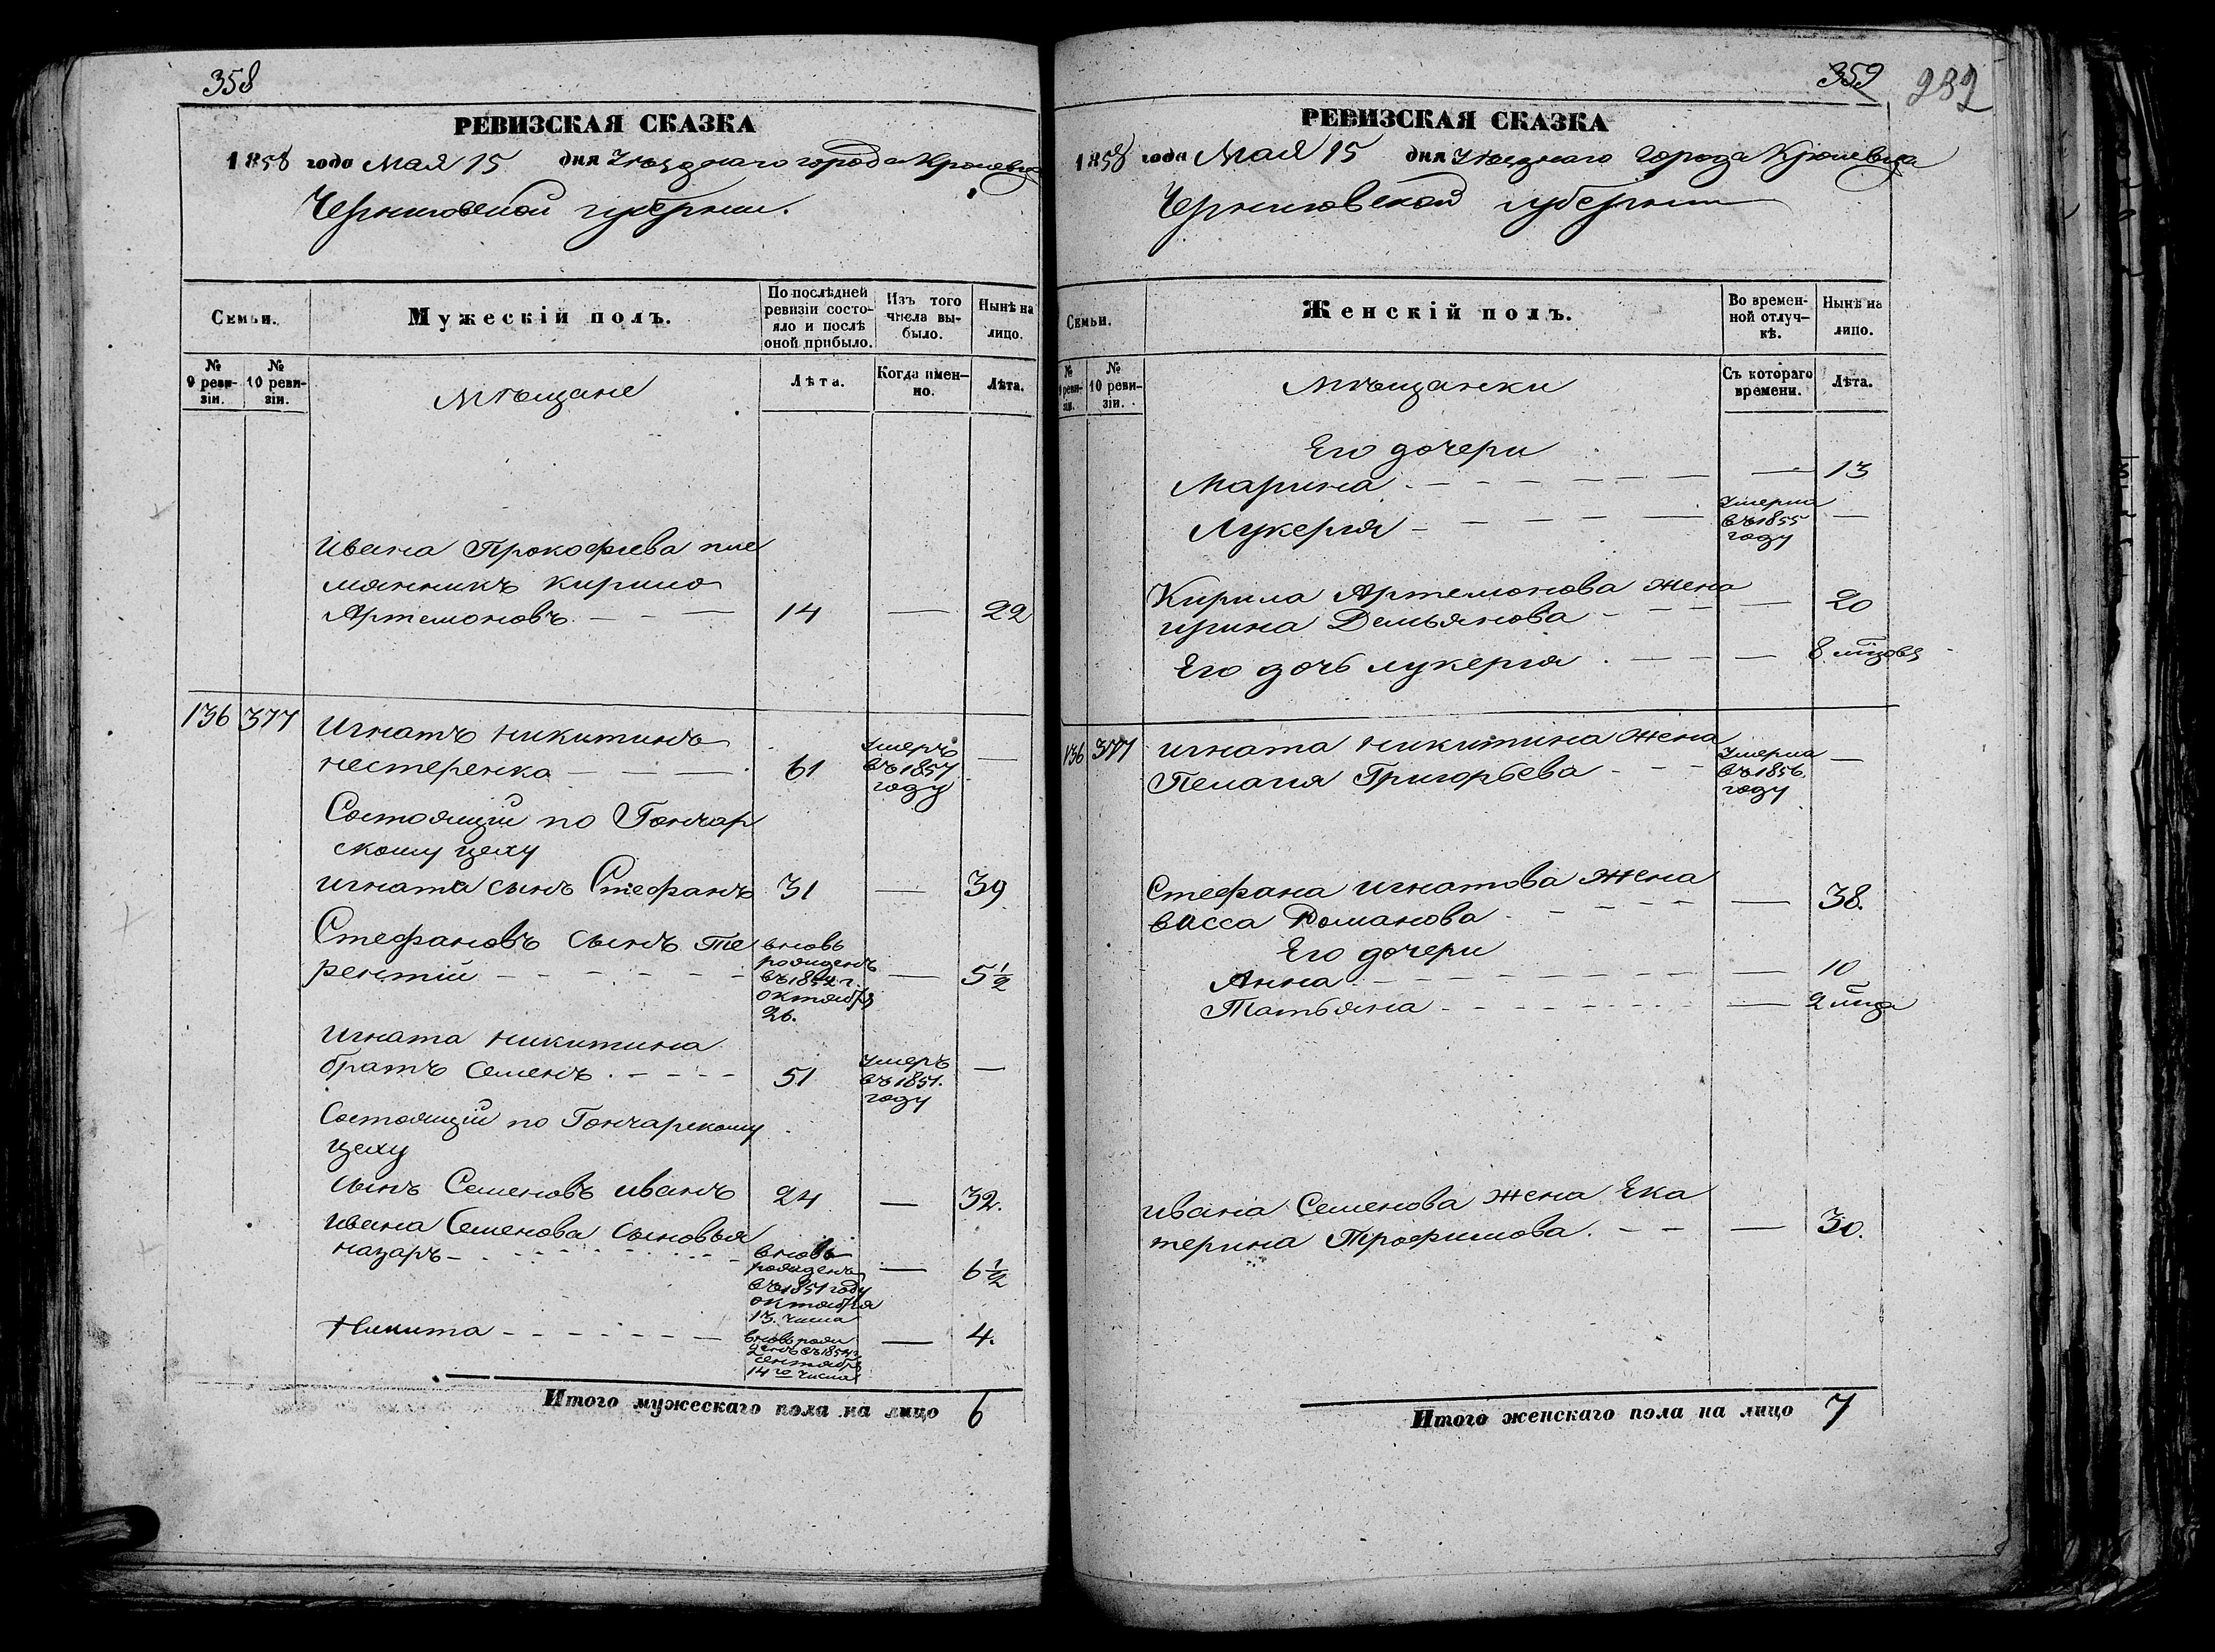 358
РЕВИЗСКАЯ СКАЗКА
1858 года Мая 15 дня Уѣзднаго города Кролевца
Черниговской губернии.
Семьи.
Мужескій полъ.
По послѣдней ревизіи состояло и послѣ оной прибыло.
Изъ того числа выбыло.
Нынѣ на лицо.
№ 9 ревизіи.
№ 10 ревизіи.
Мѣщане
Лѣта.
Когда именно.
Лѣта.
Ивана Прокофиева пле
мянникъ Кирило
Артемоновъ — — — 14 — 22
136 377
Игнатъ Никитинъ
Нестеренко — — — 61 умеръ въ 1857 году —
Состоящий по Гончар
скому цеху
Игната сынъ Стефанъ 31 — 39
Стефановъ сынъ Те
рентий — — — — вновь рожденъ въ 1852 г. октября 26. — 5 1/2
Игната Никитина
братъ Семенъ. — — — 51 умеръ въ 1851. году —
Состоящий по Гончарскому
цеху
сынъ Семеновъ Иванъ 24 — 32.
Ивана Семенова сыновья
Назаръ — — — — вновь рожденъ въ 1851 году октября 13. числа — 6 1/2
Никита — — — — вновь рожденъ въ 1854 г. сентября 14го числа — 4.
Итого мужескаго пола на лицо 6
359 232
РЕВИЗСКАЯ СКАЗКА
1858 года Мая 15 дня Уѣзднаго города Кролевца
Черниговской губернии
Семьи.
Женскій полъ.
Во временной отлучкѣ.
Нынѣ на лицо.
№ 9 ревизіи.
№ 10 ревизіи.
Мѣщанки
Съ котораго времени.
Лѣта.
Его дочери
Марина — — — — 13
Лукерия — — — — умерла въ 1855 году —
Кирила Артемонова жена
Ирина Демьянова — — — 20
Его дочь Лукерия. — — — 8 мцовъ
136 377 Игната Никитина жена
Пелагия Григорьева — — умерла въ 1856. году —
Стефана Игнатова жена
Васса Романова — — — 38.
Его дочери
Анна — — — — 10
Татьяна — — — — 2 мца
Ивана Семенова жена Ека
терина Трофимова. — — — 30.
Итого женскаго пола на лицо 7